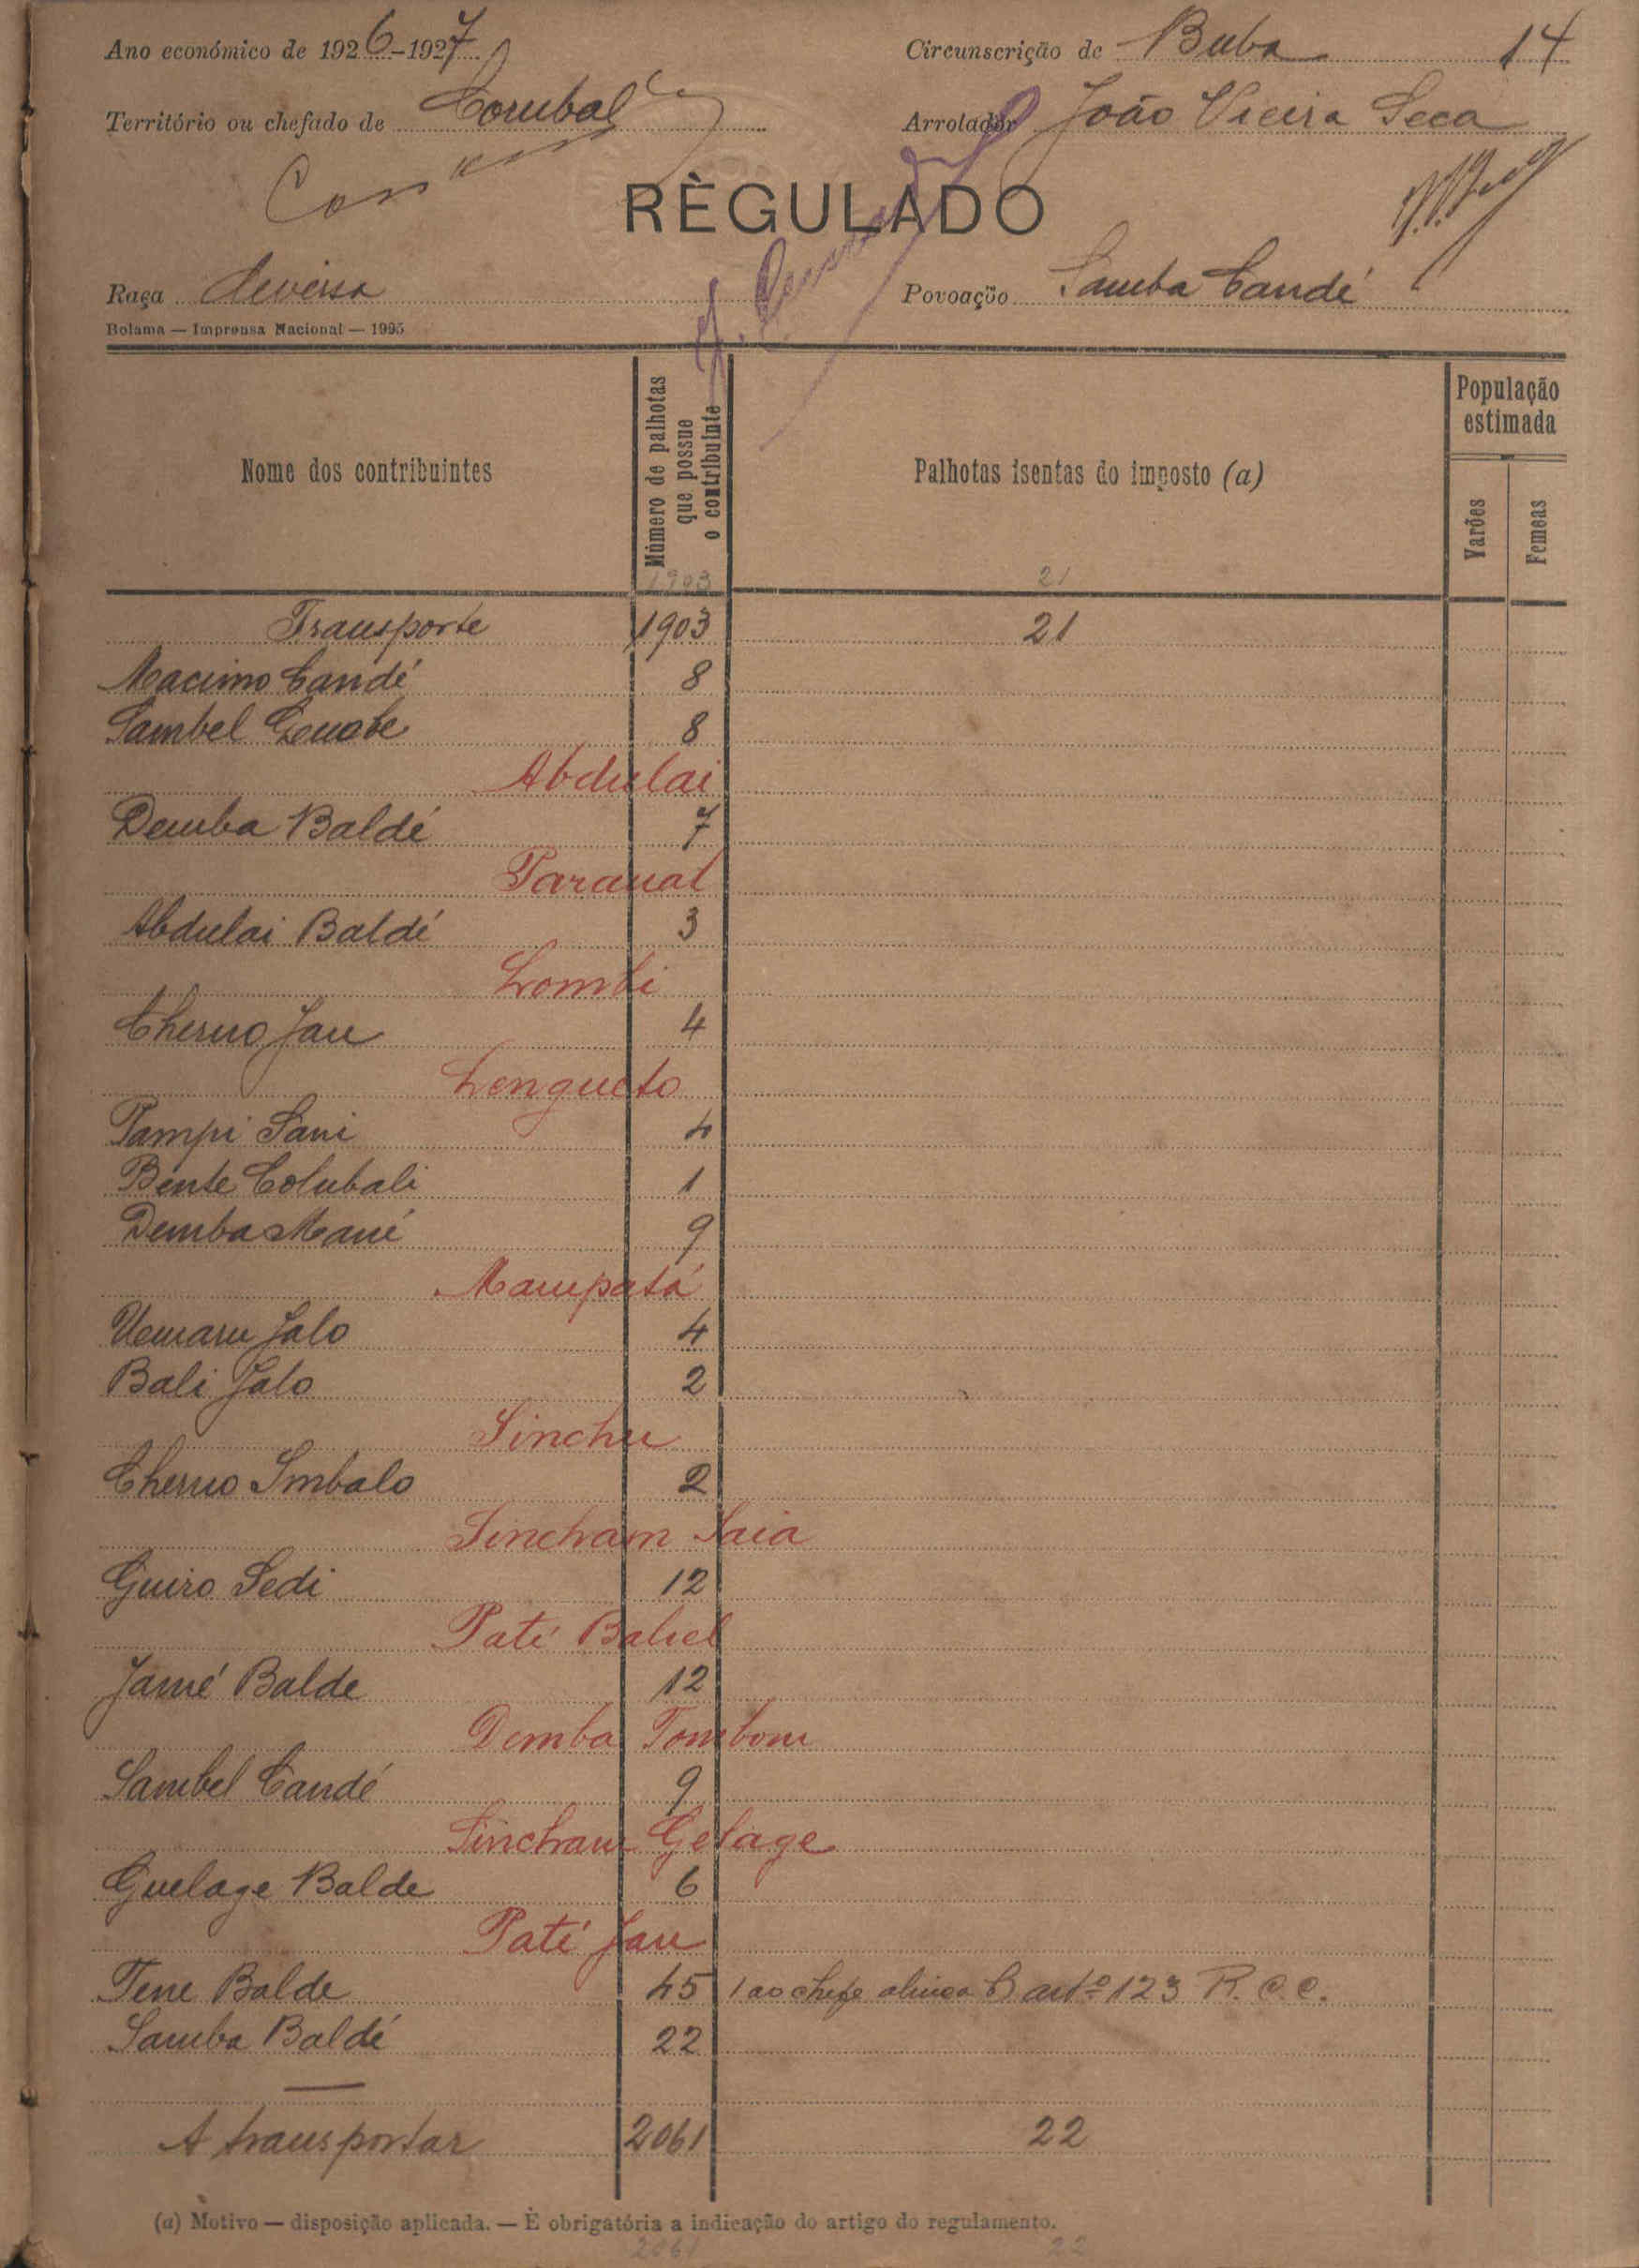 Ano económico de 1926-1927
Circunscrição de Buba 14
Território ou chefado de Corubal
Arrolador João Vieira Seca
RÈGULADO
Raça diversa
Povoação Samba Candé
Bolama — Imprensa Nacional — 1925
Nome dos contribuintes
Número de palhotas que possue o contribuinte
Palhotas isentas do imposto (a)
População estimada
Varões
Femeas
1903 21
Transporte 1903 21
Macimo Candé 8
Sambel 8
Abdulai
Demba Baldé 7
Paraual
Abdulai Baldé 3
Lombi
Cherno Jau 4
Lengueto
Pampi Sani 4
Bente Colubali 1
Demba Mané 9
Mampatá
Umaru Jalo 4
Bali Jalo 2
Sinchu
Cherno Imbalo 2
Sincham Saia
Guiro Sedi 12
Paté Baliel
Jamé Balde 12
Demba Tombom
Sambel Candé 9
Sincham Gelage
Guelage Balde 6
Paté Jau
Tene Balde 45 1 ao chefe alinea B artº 123 R. C. C.
Samba Baldé 22
A transportar 2061 22
(a) Motivo — disposição aplicada. — È obrigatória a indicação do artigo do regulamento.
2061 22